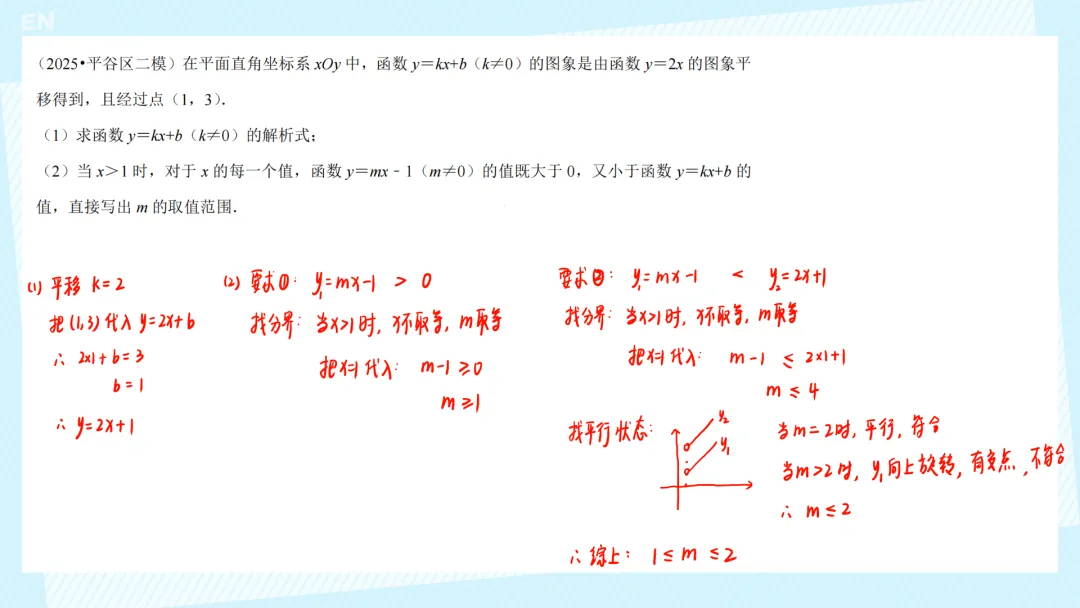 EN
（2025•平谷区二模）在平面直角坐标系 xOy 中，函数 y＝kx+b（k≠0）的图象是由函数 y＝2x 的图象平
移得到，且经过点（1，3）．
（1）求函数 y＝kx+b（k≠0）的解析式；
（2）当 x＞1 时，对于 x 的每一个值，函数 y＝mx﹣1（m≠0）的值既大于 0，又小于函数 y＝kx+b 的
值，直接写出 m 的取值范围．
(1) 平移 k=2
把(1,3)代入 y=2x+b
∴ 2×1+b=3
b=1
∴ y=2x+1
(2) 要求①: y₁=mx-1 > 0
找分界: 当x>1时, x不取等, m取等
把x=1代入: m-1≥0
m≥1
要求②: y₁=mx-1 < y₂=2x+1
找分界: 当x>1时, x不取等, m取等
把x=1代入: m-1 ≤ 2×1+1
m ≤ 4
找平行状态:
y₂
y₁
当m=2时, 平行, 符合
当m>2时, y₁向上旋转, 有交点, 不符合
∴ m≤2
∴综上: 1≤m≤2